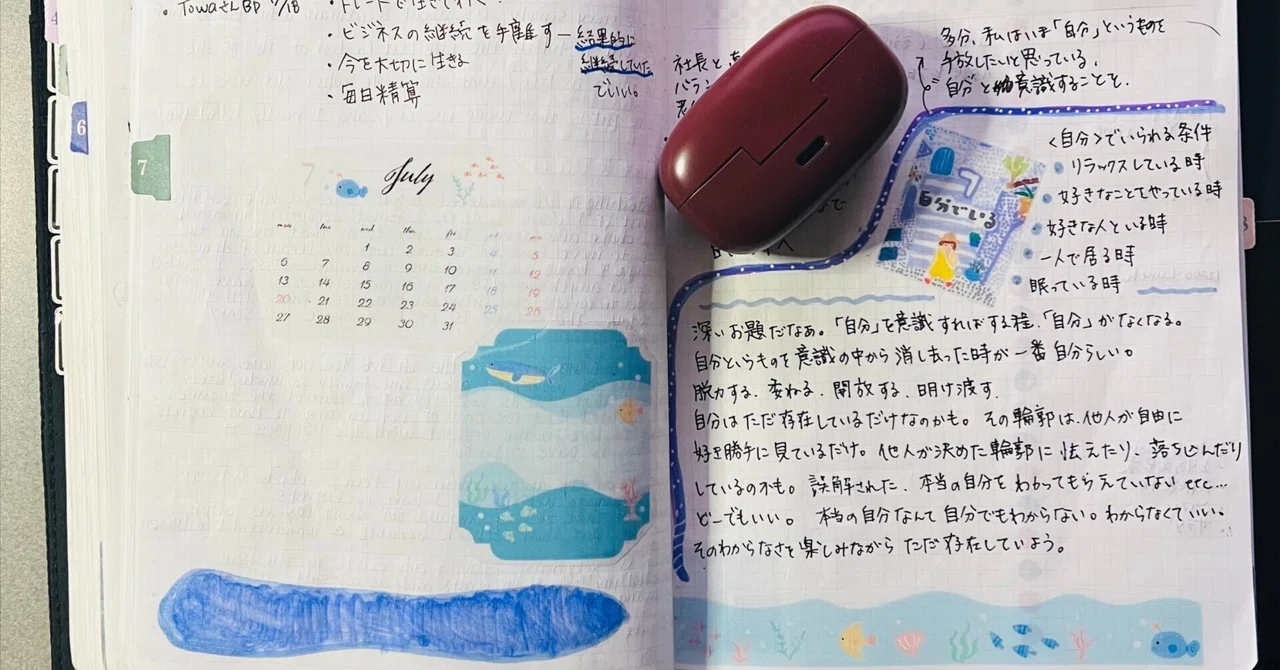 ・TowaさんBD 7/18
・ビジネスの継続を手離す ― 結果的に
継続していた
でいい。
・今を大切に生きる
・毎日精算
6
7
7
July
mon tue wed thu fri sat sun
1 2 3 4 5
6 7 8 9 10 11 12
13 14 15 16 17 18 19
20 21 22 23 24 25 26
27 28 29 30 31
社長と
バラン
多分、私はいま「自分」というものを
手放したいと思っている、
自分と意識することを。
〈自分〉でいられる条件
・リラックスしている時
・好きなことをやっている時
・好きな人といる時
・一人で居る時
・眠っている時
自分でいる
深いお題だなぁ。「自分」を意識すればする程、「自分」がなくなる。
自分というものを意識の中から消し去った時が一番自分らしい。
脱力する、委ねる、開放する、明け渡す、
自分はただ存在しているだけなのかも。その輪郭は、他人が自由に
好き勝手に見ているだけ。他人が決めた輪郭に怯えたり、落ち込んだり
しているのかも。誤解された、本当の自分をわかってもらえていないetc…
どーでもいい。本当の自分なんて自分でもわからない。わからなくていい。
そのわからなさを楽しみながらただ存在していよう。